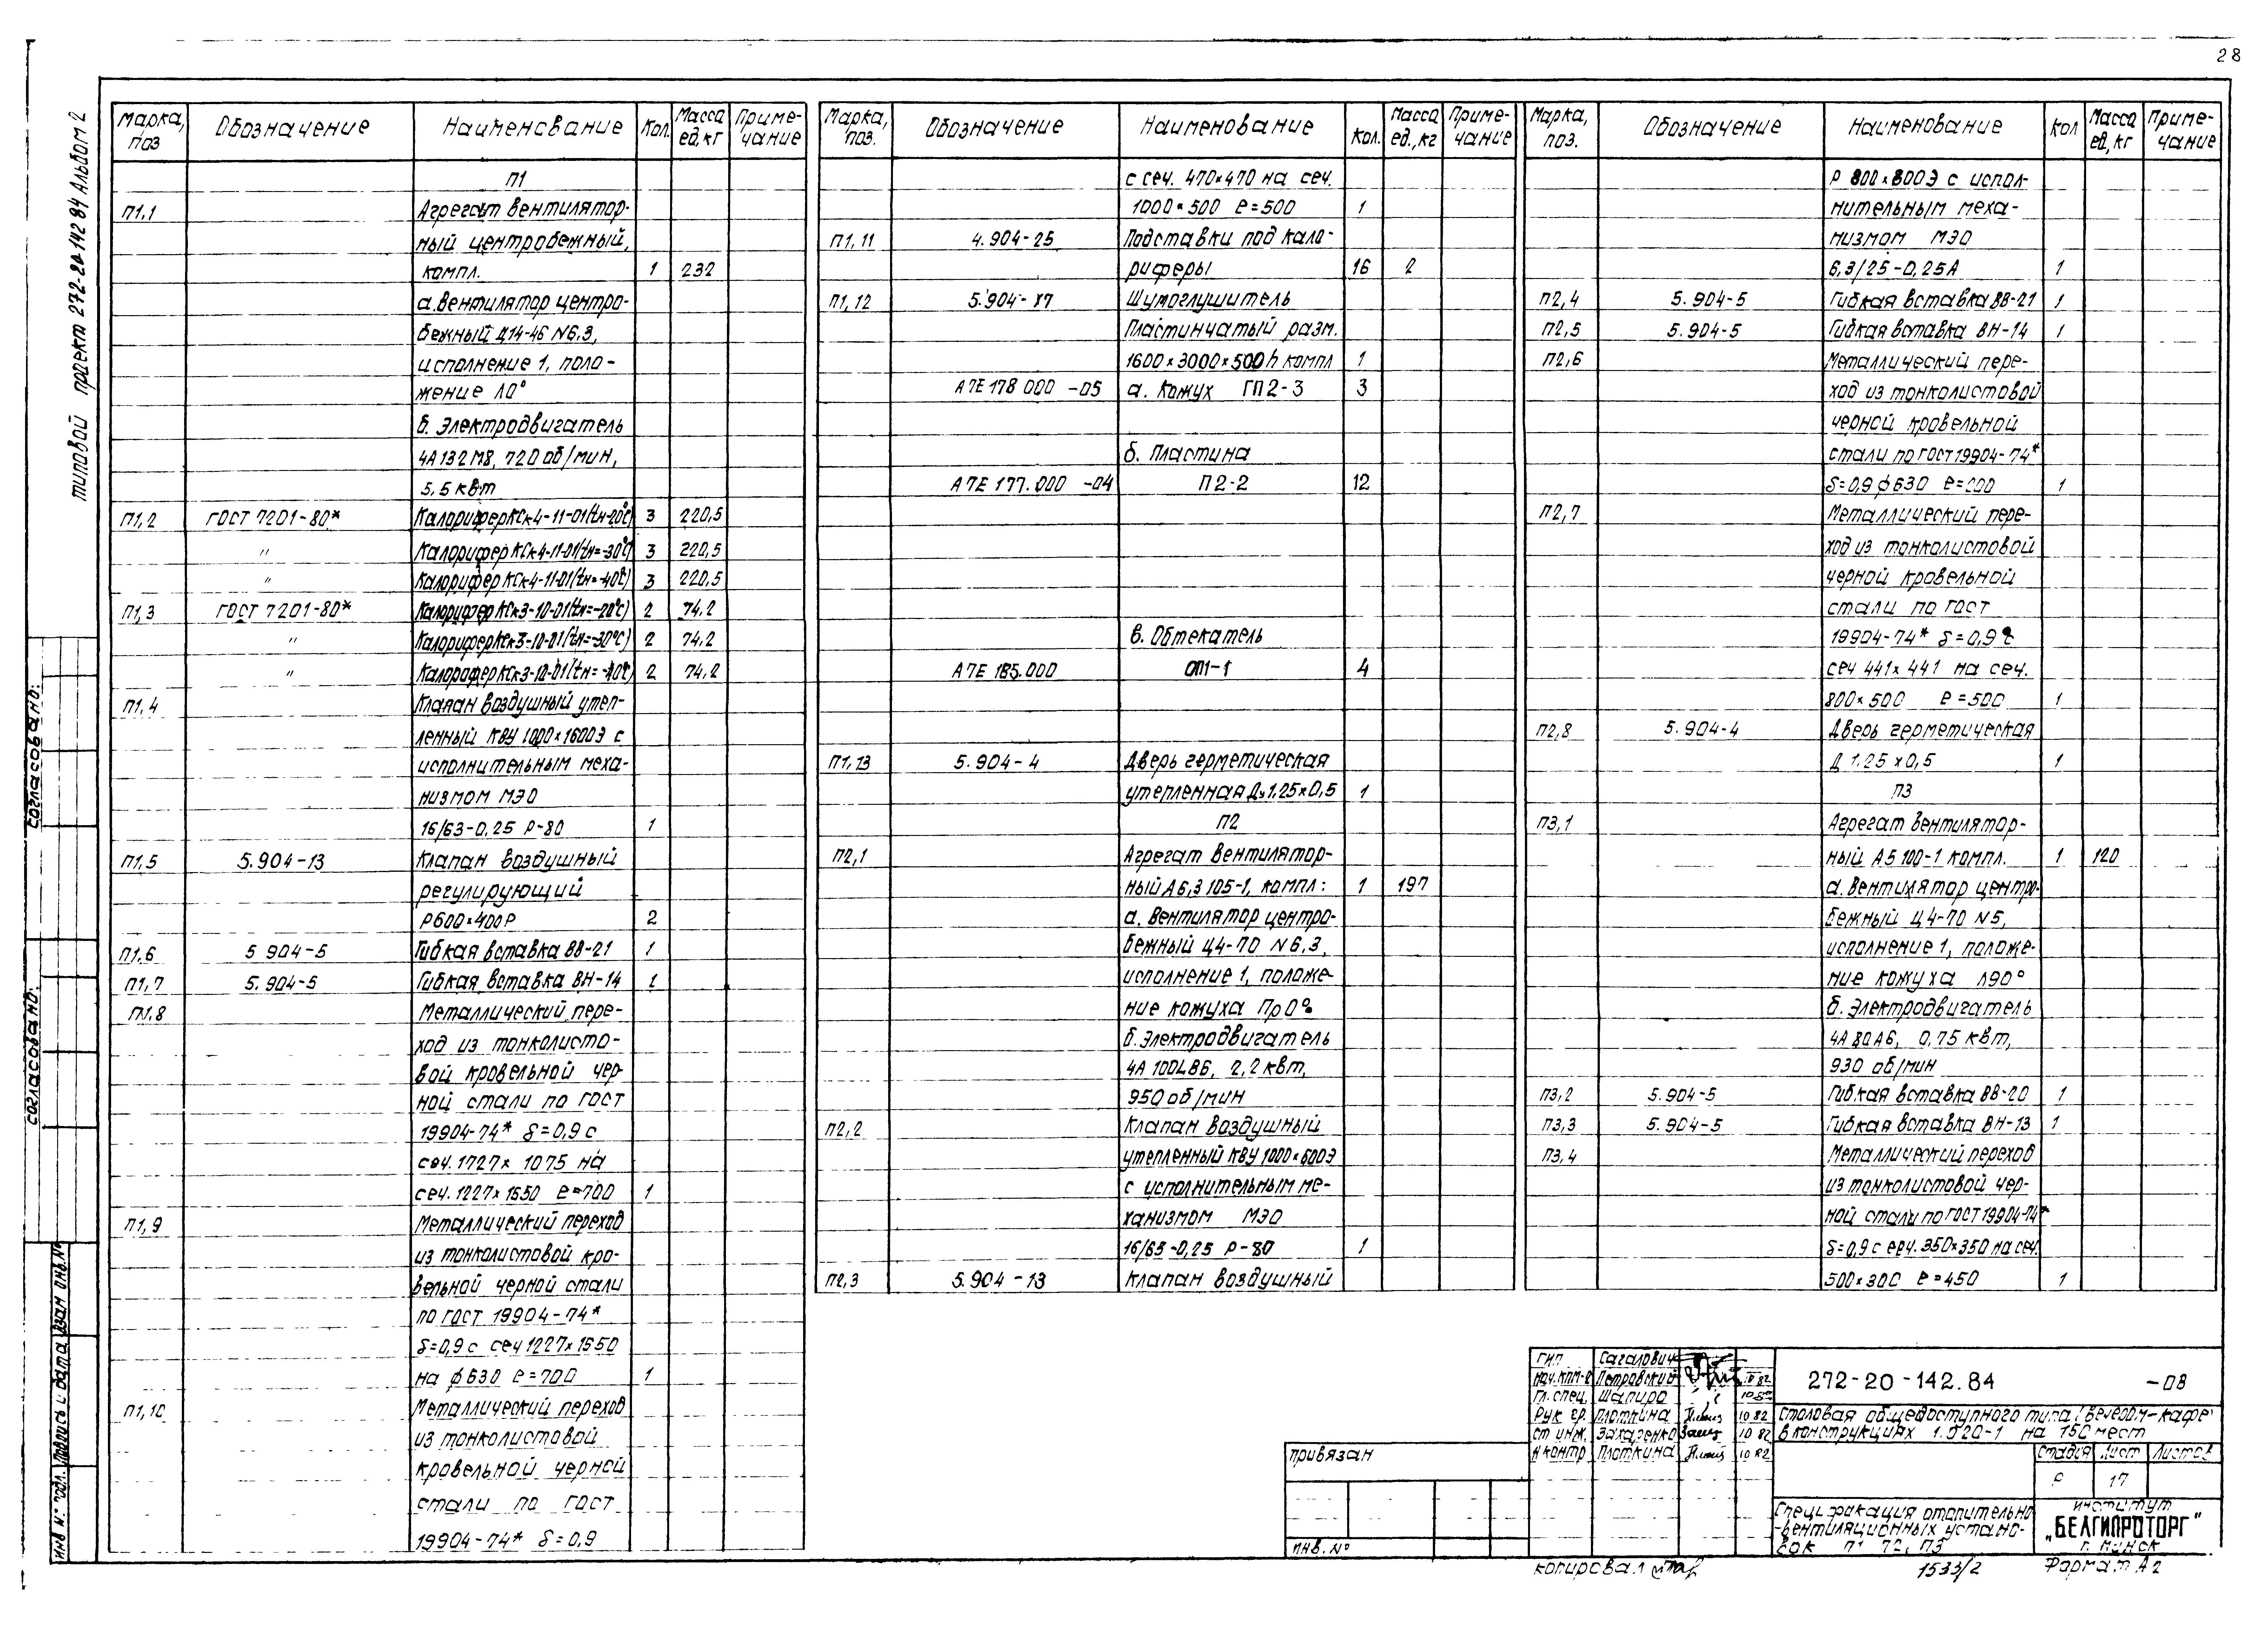 28
типовой проект 272-20-142 84 Альбом 2
Марка, поз Обозначение Наименование Кол. Масса ед, кг Примечание
П1
П1,1 Агрегат вентилятор-
ный центробежный,
компл. 1 232
а. Вентилятор центро-
бежный Ц14-46 N6.3,
исполнение 1, поло-
жение Л0°
б. Электродвигатель
4А132М8, 720 об/мин,
5.5 квт
П1,2 ГОСТ 7201-80* Калорифер КСк4-11-01(tн-20°С) 3 220,5
" Калорифер КСк4-11-01(tн=-30°С) 3 220,5
" Калорифер КСк4-11-01(tн=-40°С) 3 220,5
П1,3 ГОСТ 7201-80* Калорифер КСк3-10-01(tн=-20°С) 2 74,2
" Калорифер КСк3-10-01(tн=-30°С) 2 74,2
" Калорифер КСк3-10-01(tн=-40°С) 2 74,2
П1,4 Клапан воздушный утеп-
ленный КВУ 1000×1600Э с
исполнительным меха-
низмом МЭО
16/63-0,25 Р-80 1
П1,5 5.904-13 Клапан воздушный
регулирующий
Р600×400Р 2
П1.6 5 904-5 Гибкая вставка ВВ-21 1
П1,7 5.904-5 Гибкая вставка ВН-14 1
П1.8 Металлический пере-
ход из тонколисто-
вой кровельной чер-
ной стали по ГОСТ
19904-74* δ=0,9 с
сеч. 1727× 1075 на
сеч. 1227×1550 ℓ=700 1
П1,9 Металлический переход
из тонколистовой кро-
вельной черной стали
по ГОСТ 19904-74*
δ=0,9 с сеч 1227×1550
на ф630 ℓ=700 1
П1,10 Металлический переход
из тонколистовой
кровельной черной
стали по ГОСТ
19904-74* δ=0,9
Марка, поз. Обозначение Наименование Кол. Масса ед., кг Примечание
с сеч. 470×470 на сеч.
1000×500 ℓ=500 1
П1,11 4.904-25 Подставки под кало-
риферы 16 2
П1,12 5.904-17 Шумоглушитель
пластинчатый разм.
1600×3000×500h компл 1
А7Е 178 000 -05 а. Кожух ГП2-3 3
б. Пластина
А7Е 177.000 -04 П2-2 12
в. Обтекатель
А7Е 185.000 ОП1-1 4
П1,13 5.904-4 Дверь герметическая
утепленная Ду1,25×0,5 1
П2
П2,1 Агрегат вентилятор-
ный А6,3 105-1, компл: 1 197
а. Вентилятор центро-
бежный Ц4-70 N6,3,
исполнение 1, положе-
ние кожуха Пр0°
б. Электродвигатель
4А 100L86, 2,2 квт,
950 об/мин
П2,2 Клапан воздушный
утепленный КВУ 1000×600Э
с исполнительным ме-
ханизмом МЭО
16/63-0,25 Р-80 1
П2,3 5.904-13 Клапан воздушный
Марка, поз. Обозначение Наименование Кол Масса ед, кг Примечание
Р 800×800Э с испол-
нительным меха-
низмом МЭО
6,3/25-0,25А 1
П2,4 5.904-5 Гибкая вставка ВВ-21 1
П2,5 5.904-5 Гибкая вставка ВН-14 1
П2,6 Металлический пере-
ход из тонколистовой
черной кровельной
стали по ГОСТ19904-74*
δ=0,9 ф630 ℓ=200 1
П2,7 Металлический пере-
ход из тонколистовой
черной кровельной
стали по ГОСТ
19904-74* δ=0,9 с
сеч 441×441 на сеч.
800×500 ℓ=500 1
П2,8 5.904-4 Дверь герметическая
Д 1.25×0,5 1
П3
П3,1 Агрегат вентилятор-
ный А5 100-1 компл. 1 120
а. Вентилятор центро-
бежный Ц4-70 N5,
исполнение 1, положе-
ние кожуха Л90°
б. Электродвигатель
4А 80А6, 0,75 квт,
930 об/мин
П3,2 5.904-5 Гибкая вставка ВВ-20 1
П3,3 5.904-5 Гибкая вставка ВН-13 1
П3,4 Металлический переход
из тонколистовой чер-
ной стали по ГОСТ19904-74*
δ=0,9 с сеч. 350×350 на сеч.
500×300 ℓ=450 1
согласовано:
согласовано:
инв № подл. Подпись и дата Взам инв.№
привязан
инв.№
ГИП Сагалович
нач.КПМ-2 Петровский 10 82
Гл. спец. Шапиро
Рук гр. Плоткина 10 82
ст инж. Захаренко 10 82
Н контр Плоткина 10 82
272-20-142.84 -08
Столовая общедоступного типа (вечером-кафе)
в конструкциях 1.020-1 на 150 мест
Стадия Лист Листов
Р 17
Спецификация отопительно
-вентиляционных устано-
вок П1 П2, П3
институт
"БЕЛГИПРОТОРГ"
г. Минск
копировал
1533/2
Формат А2